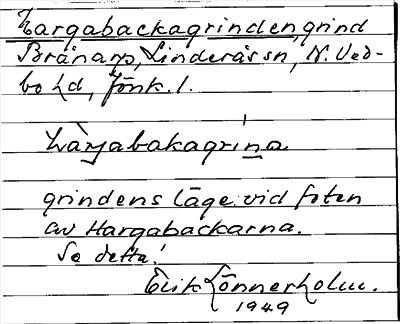 Hargabackagrinden, grind
Brånarp, Linderås sn, N. Ved-
bo hd, Jönk. l.
hàrjabakagrína
grindens läge: vid foten
av Hargabackarna.
Se detta!
Erik Lönnerholm.
1949